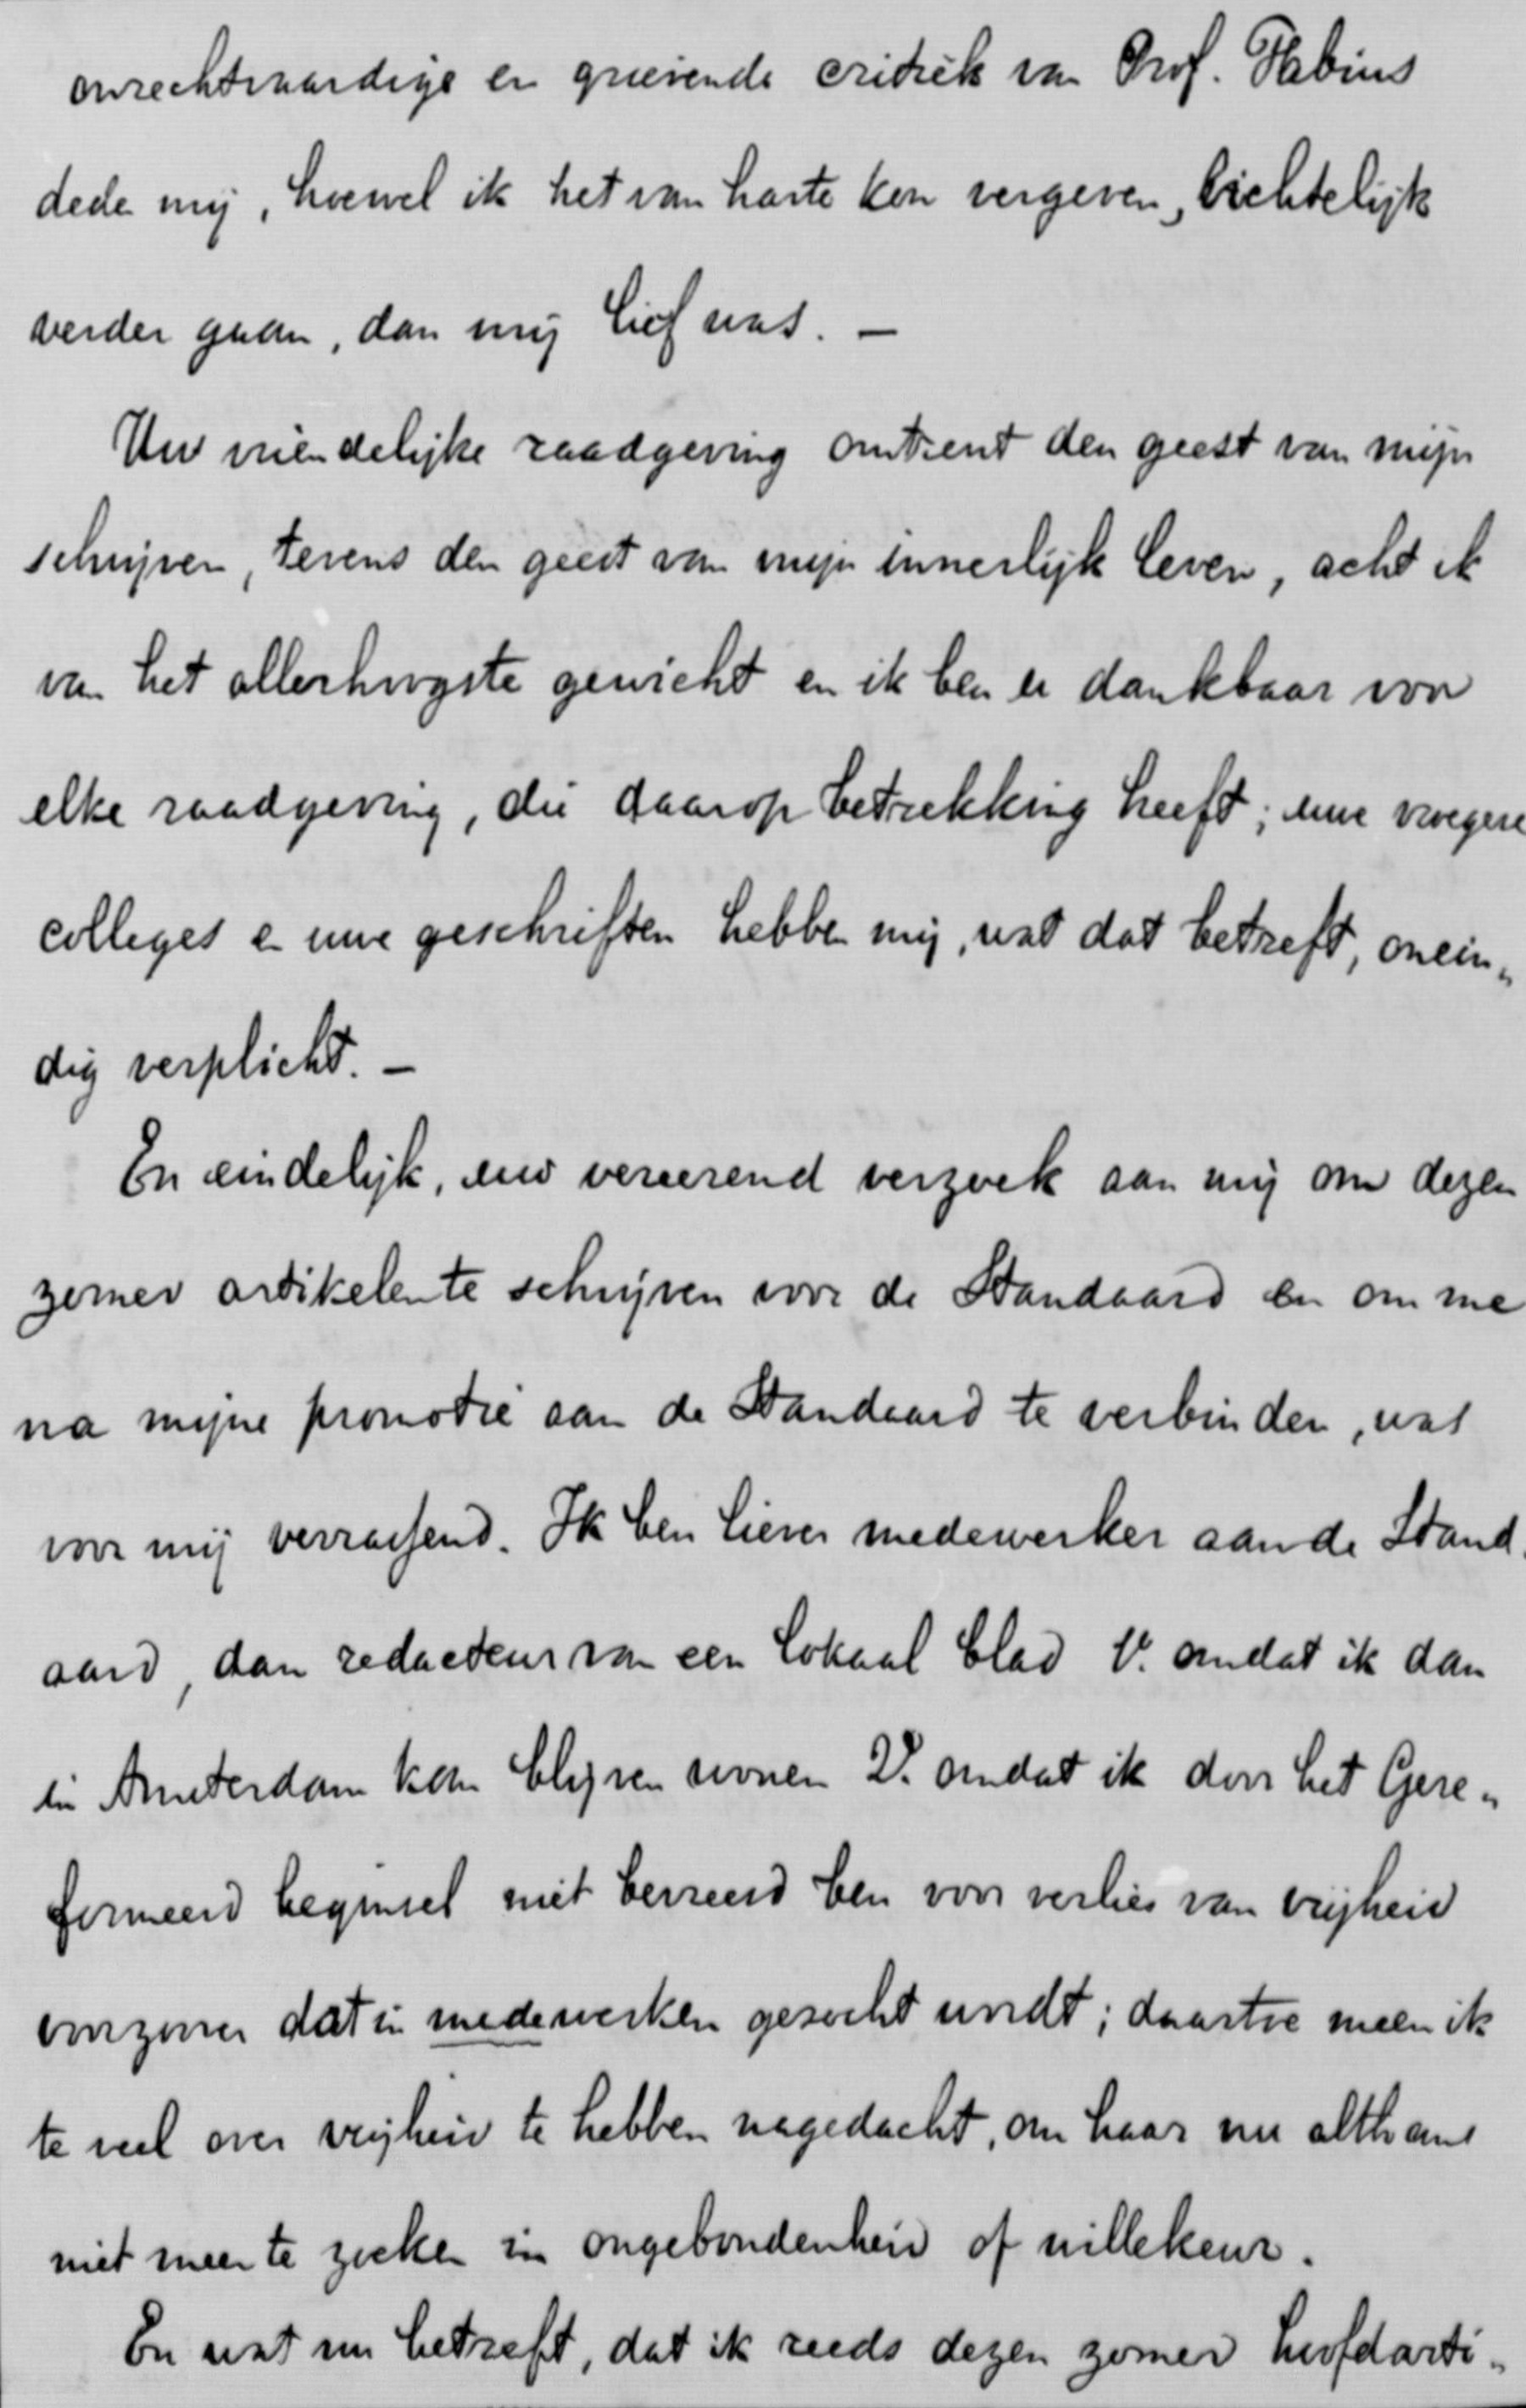 onrechtvaardige en grievende critiek van Prof. Fabius
dede mij, hoewel ik het van harte kon vergeven, lichtelijk
verder gaan, dan mij lief was. –
Uw vriendelijke raadgeving omtrent den geest van mijn
schrijven, tevens den geest van mijn innerlijk leven, acht ik
van het allerhoogste gewicht en ik ben er dankbaar voor
elke raadgeving, die daarop betrekking heeft; uwe vroegere
colleges en uwe geschriften hebben mij, wat dat betreft, onein„
dig verplicht. –
En eindelijk, uw vereerend verzoek aan mij om dezen
zomer artikelen te schrijven voor de Standaard en om me
na mijne promotie aan de Standaard te verbinden, was
voor mij verrassend. Ik ben liever medewerker aan de Stand„
aard, dan redacteur van een lokaal blad 1º. omdat ik dan
in Amsterdam kan blijven wonen 2º. omdat ik door het Gere„
formeerd beginsel niet bevreesd ben voor verlies van vrijheid
voorzoover dat in medewerken gezocht wordt; daartoe meen ik
te veel over vrijheid te hebben nagedacht, om haar nu althans
niet meer te zoeken in ongebondenheid of willekeur.
En wat nu betreft, dat ik reeds dezen zomer hoofdarti„